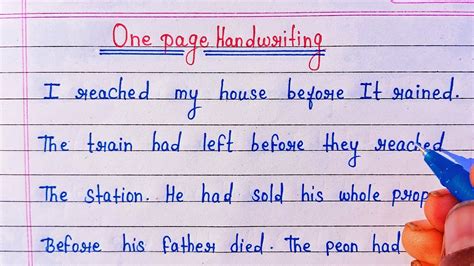 One page Handwriting
I reached my house before It rained.
The train had left before they reached
The station. He had sold his whole prop
Before his father died. The peon had